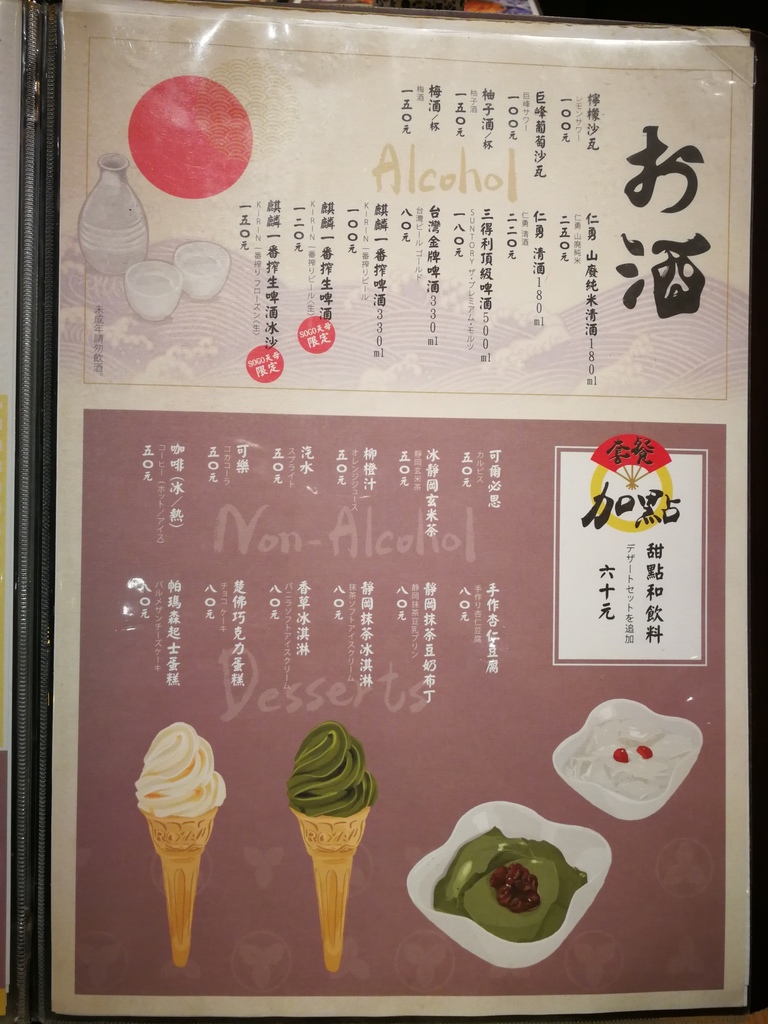 お酒
Alcohol
檸檬沙瓦
レモンサワー
一〇〇元
巨峰葡萄沙瓦
巨峰サワー
一〇〇元
柚子酒/杯
柚子酒
一五〇元
梅酒/杯
梅酒
一五〇元
仁勇 山廢純米清酒180ml
仁勇 山廃純米
二五〇元
仁勇 清酒180ml
仁勇 清酒
二二〇元
三得利頂級啤酒500ml
SUNTORY ザ・プレミアム・モルツ
一八〇元
台灣金牌啤酒330ml
台湾ビール ゴールド
八〇元
麒麟一番搾啤酒330ml
KIRIN 一番搾りビール
一〇〇元
麒麟一番搾生啤酒
KIRIN 一番搾りビール(生)
一二〇元
SOGO天母
限定
麒麟一番搾生啤酒冰沙
KIRIN 一番搾り フローズン(生)
一五〇元
SOGO天母
限定
未成年請勿飲酒。
套餐
加點
甜點和飲料
デザートセットを追加
六十元
Non-Alcohol
可爾必思
カルピス
五〇元
冰靜岡玄米茶
靜岡玄米茶
五〇元
柳橙汁
オレンジジュース
五〇元
汽水
スプライト
五〇元
可樂
コカコーラ
五〇元
咖啡(冰/熱)
コーヒー(ホット/アイス)
五〇元
Desserts
手作杏仁豆腐
手作り杏仁豆腐
八〇元
靜岡抹茶豆奶布丁
静岡抹茶豆乳プリン
八〇元
靜岡抹茶冰淇淋
抹茶ソフトアイスクリーム
八〇元
香草冰淇淋
バニラソフトアイスクリーム
八〇元
楚佛巧克力蛋糕
チョコケーキ
八〇元
帕瑪森起士蛋糕
パルメザンチーズケーキ
八〇元
ROYAL
ROYAL